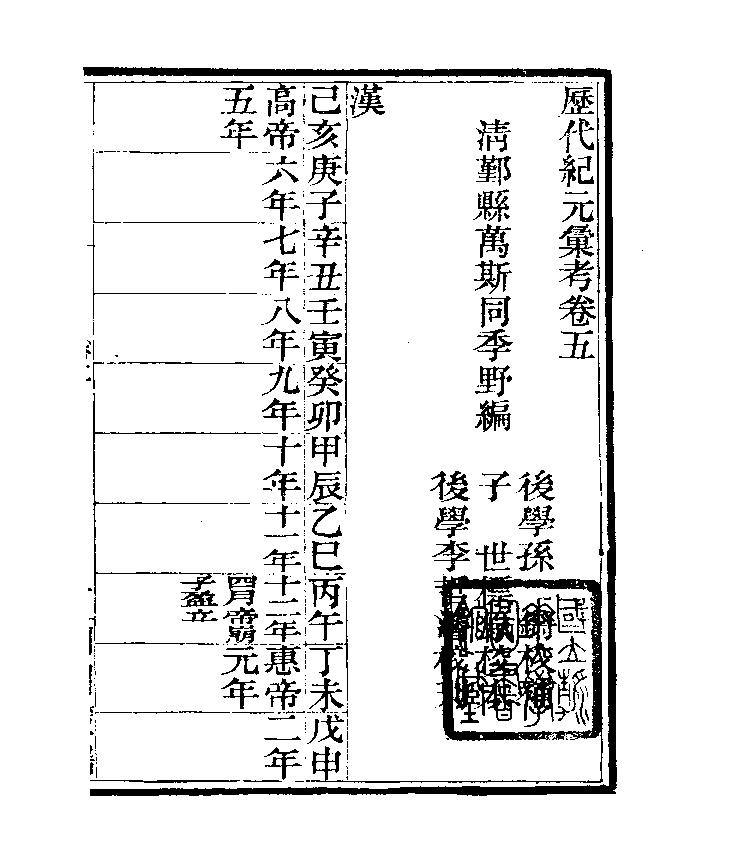 歷代紀元彙考卷五
清鄞縣萬斯同季野編
後學孫
校補
子 世標
後學李
漢
己亥庚子辛丑壬寅癸卯甲辰乙巳丙午丁未戊申
高帝六年七年八年九年十年十一年十二年惠帝二年
五年
四月帝崩
子盈立
元年
國立